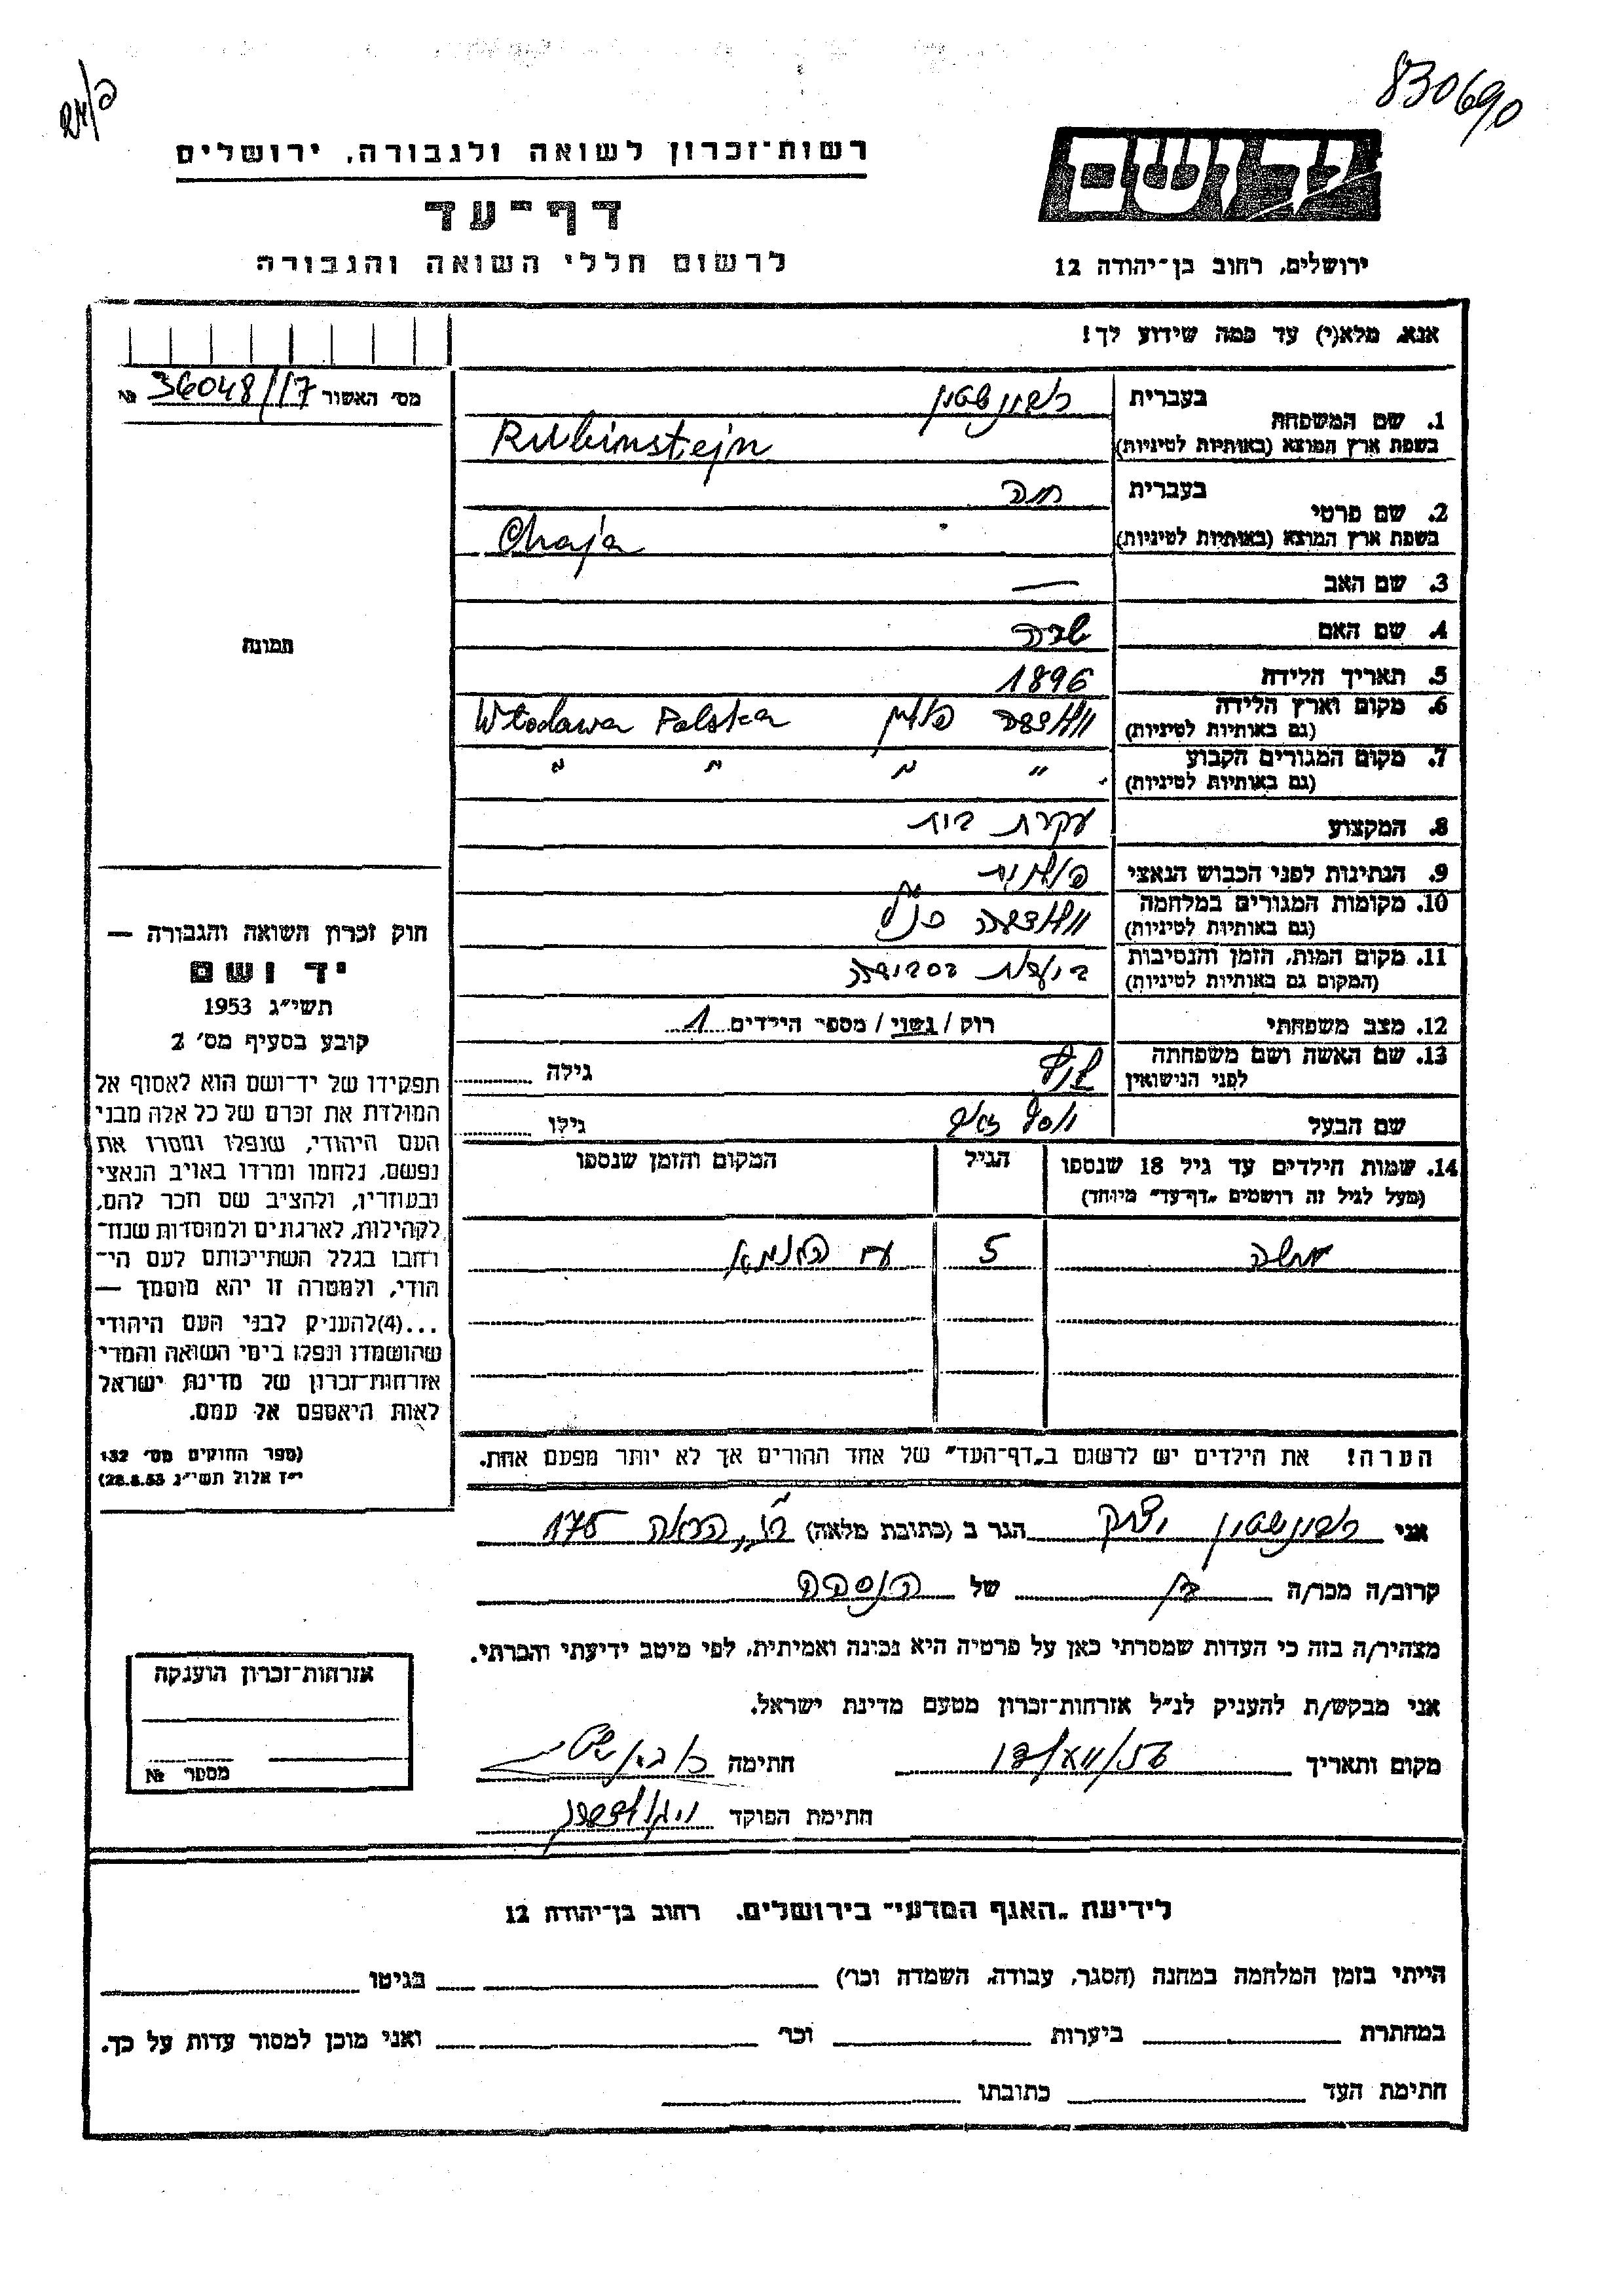 830690
רשות־זכרון לשואה ולגבורה, ירושלים
דף־עד
לרשום חללי השואה והגבורה
יד ושם
ירושלים, רחוב בן־יהודה 12
אנא, מלא(י) עד כמה שידוע לך!
מס׳ האשור 36048/17 №
תמונה
1. שם המשפחה
בעברית רובינשטיין
בשפת ארץ המוצא (באותיות לטיניות) Rubinstejn
2. שם פרטי
בעברית חיה
בשפת ארץ המוצא (באותיות לטיניות) Chaja
3. שם האב —
4. שם האם
5. תאריך הלידה 1896
6. מקום וארץ הלידה (גם באותיות לטיניות) פולין Włodawa Polska
7. מקום המגורים הקבוע (גם באותיות לטיניות) " " " "
8. המקצוע עקרת בית
9. הנתינות לפני הכבוש הנאצי פולנית
10. מקומות המגורים במלחמה (גם באותיות לטיניות)
11. מקום המות, הזמן והנסיבות (המקום גם באותיות לטיניות)
12. מצב משפחתי רוק / נשוי / מספר הילדים 1
13. שם האשה ושם משפחתה לפני הנישואין גילה
שם הבעל גילו
14. שמות הילדים עד גיל 18 שנספו (מעל לגיל זה רושמים „דף־עד״ מיוחד)
הגיל
המקום והזמן שנספו
משה 5 עם האמא
הערה! את הילדים יש לרשום ב„דף־העד״ של אחד ההורים אך לא יותר מפעם אחת.
חוק זכרון השואה והגבורה —
יד ושם
תשי״ג 1953
קובע בסעיף מס׳ 2
תפקידו של יד־ושם הוא לאסוף אל
המולדת את זכרם של כל אלה מבני
העם היהודי, שנפלו ומסרו את
נפשם, נלחמו ומרדו באויב הנאצי
ובעוזריו, ולהציב שם וזכר להם,
לקהילות, לארגונים ולמוסדות שנח־
רחבו בגלל השתייכותם לעם הי־
הודי, ולמטרה זו יהא מוסמך —
...(4)להעניק לבני העם היהודי
שהושמדו ונפלו בימי השואה והמרי
אזרחות־זכרון של מדינת ישראל
לאות היאספם אל עמם.
(ספר החוקים מס׳ 132
י״ז אלול תשי״ג 28.8.53)
אני רובינשטיין יצחק הגר ב (כתובת מלאה) 175
קרוב/ה מכר/ה בן של הנספה
מצהיר/ה בזה כי העדות שמסרתי כאן על פרטיה היא נכונה ואמיתית, לפי מיטב ידיעתי והכרתי.
אני מבקש/ת להעניק לנ״ל אזרחות־זכרון מטעם מדינת ישראל.
מקום ותאריך חתימה
חתימת הפוקד
אזרחות־זכרון הוענקה
מספר №
לידיעת „האגף המדעי״ בירושלים, רחוב בן־יהודה 12
הייתי בזמן המלחמה במחנה (הסגר, עבודה, השמדה וכו׳) בגיטו
במחתרת ביערות וכו׳ ואני מוכן למסור עדות על כך.
חתימת העד כתובתו